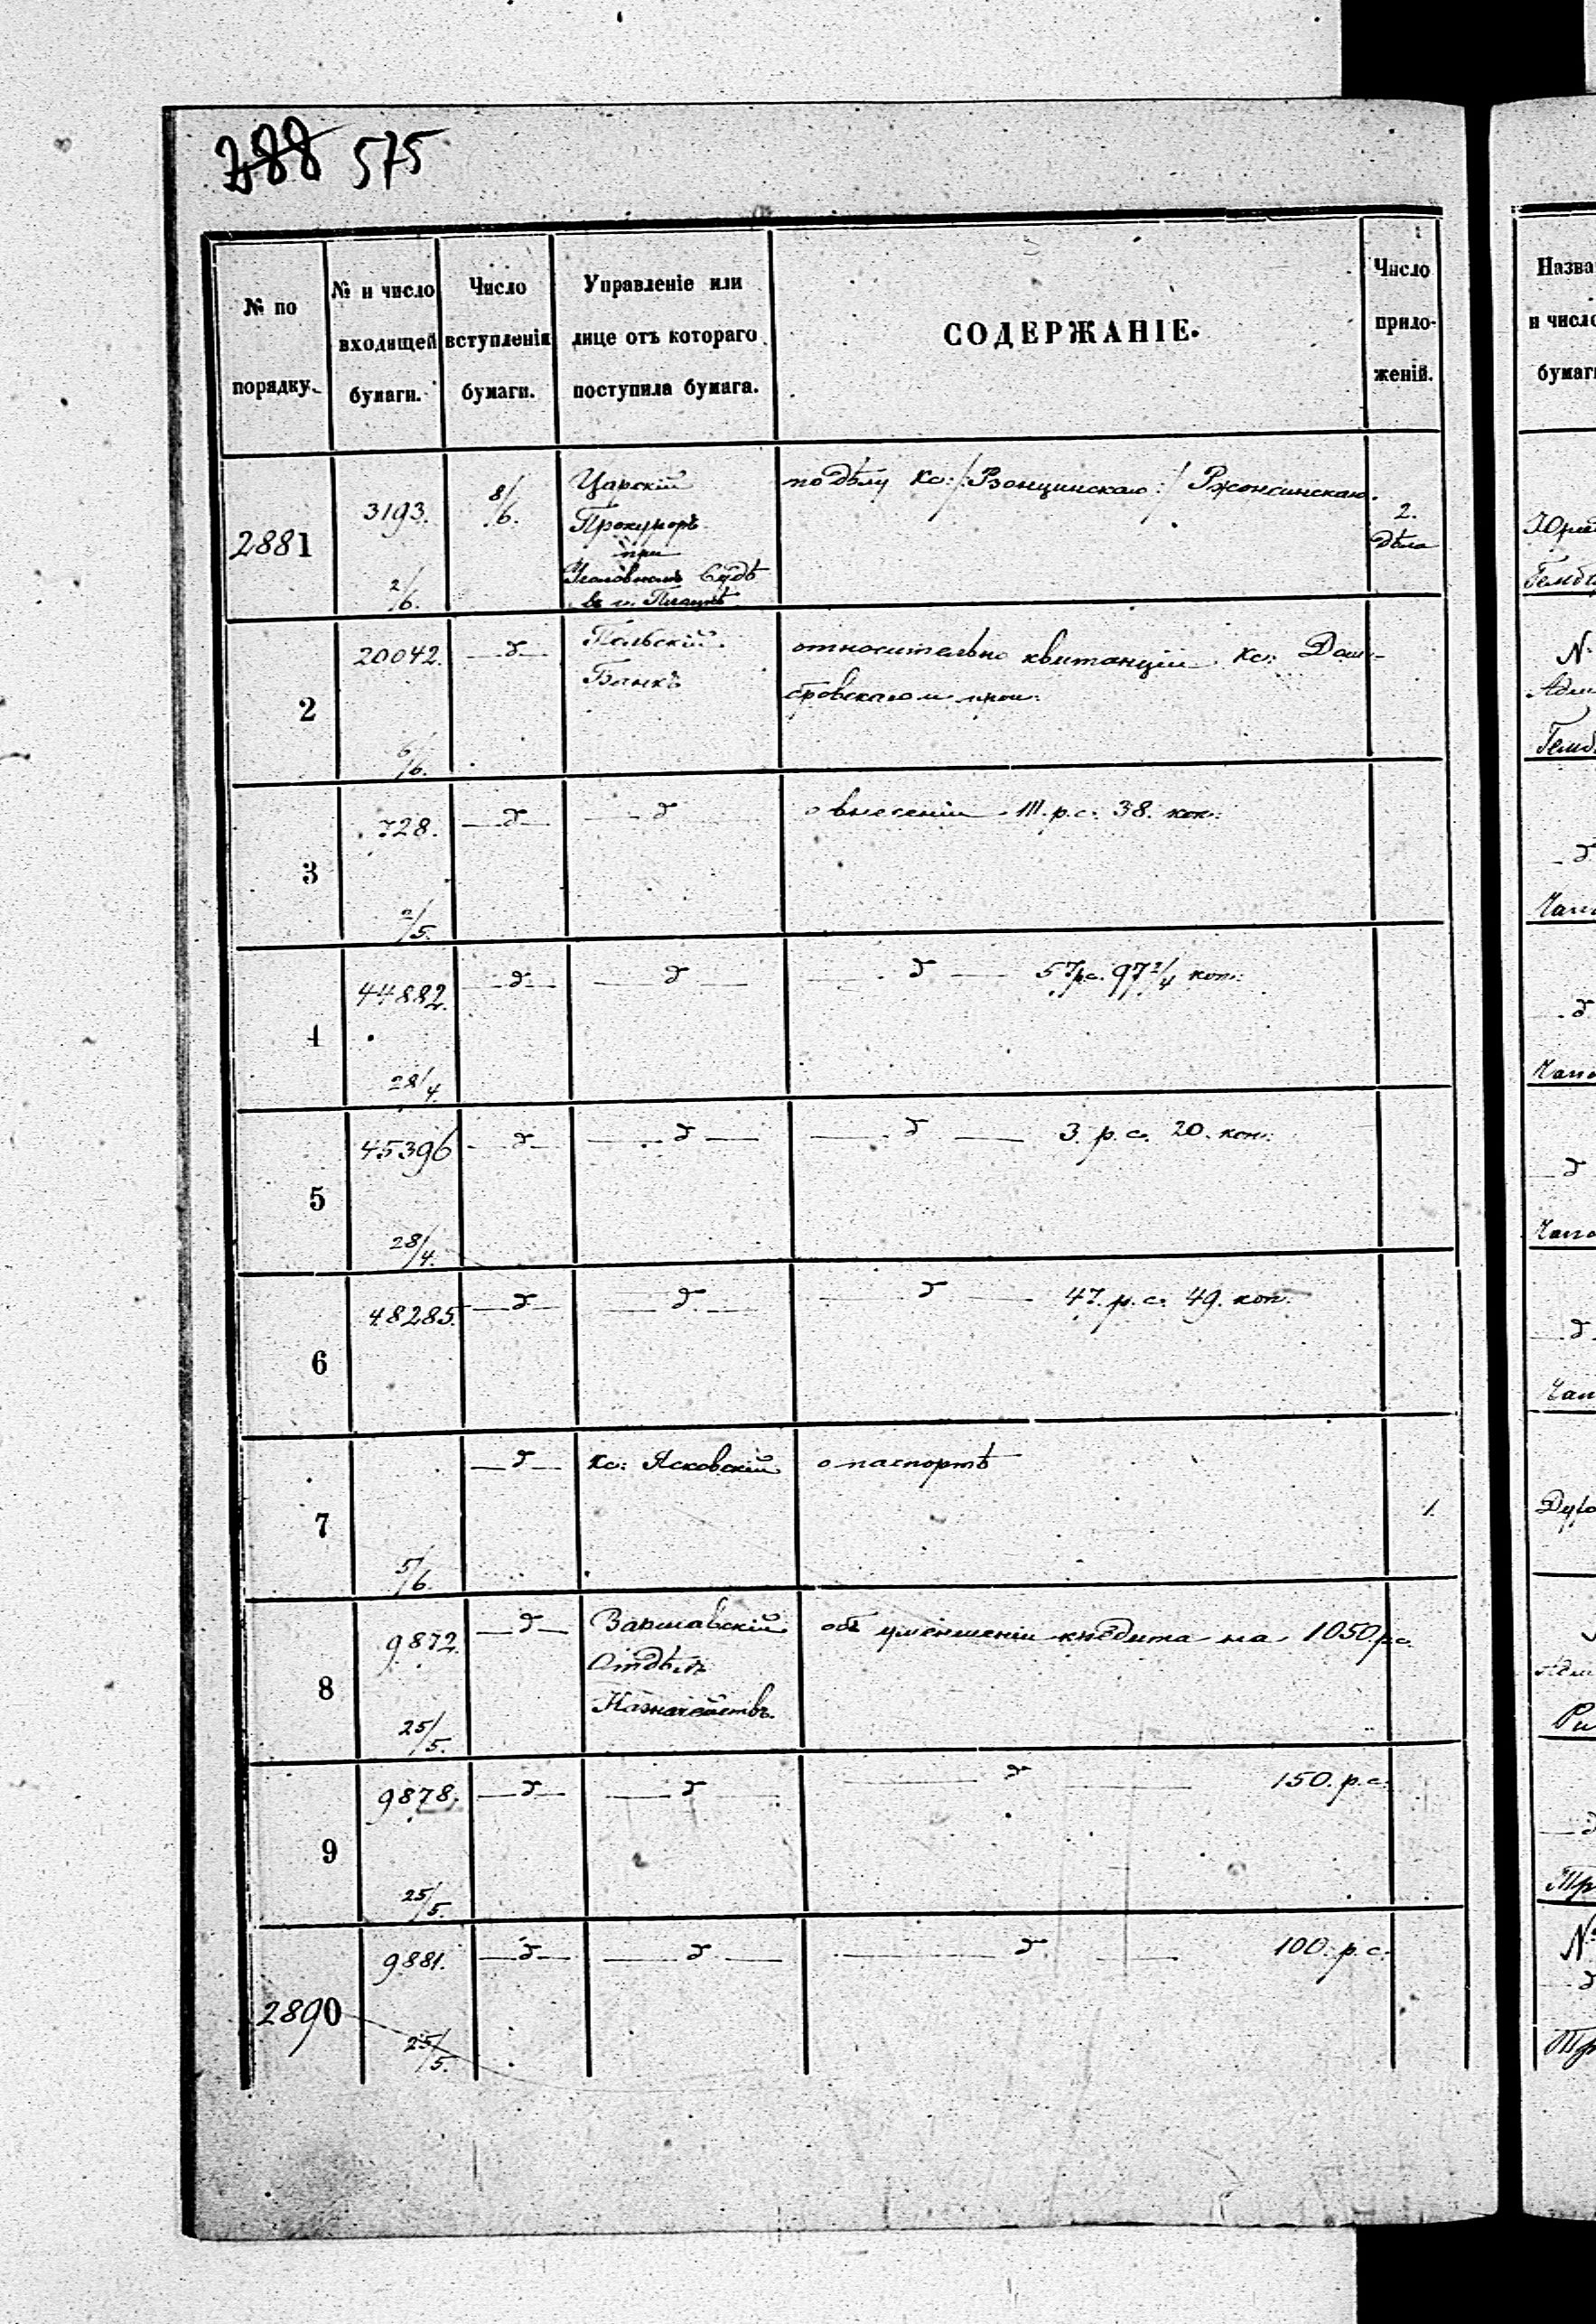 288 575
№ по порядку.
№ и число входящей бумаги.
Число вступленія бумаги.
Управленіе или лице отъ котораго поступила бумага.
СОДЕРЖАНІЕ.
Число приложеній.
2881
3193.
2/6.
8/6.
Царскій
Прокуроръ
при
Уголовномъ Судѣ
въ г. Плоцкѣ
по дѣлу Кс: /:Вонцинскаго:/ Ржонсинскаго.
2.
дѣла
2
20042.
6/6.
— д —
Польскій
Банкъ
относительно квитанціи кс:
3
728.
2/5.
— д —
— д
о внесеніи 111. р. с. 38. коп:
4
44882.
28/4.
— д —
— д —
— д — 57 р.с. 97 2/4 коп:
5
45396
28/4.
— д —
— д —
— д — 3. р. с. 20. коп:
6
48285.
— д —
— д —
— д — 47. р. с. 49. коп.
7
5/6.
— д —
кс: Ясковскій
о паспортѣ
1.
8
9872.
25/5.
— д —
Варшавскій
Отдѣлъ
Казначействъ.
объ уменшеніи кредита на 1050 р.с.
9
9878.
25/5.
— д —
— д —
— д — 150. р. с.
2890
9881.
25/5.
— д —
— д —
— д — 100. р. с.